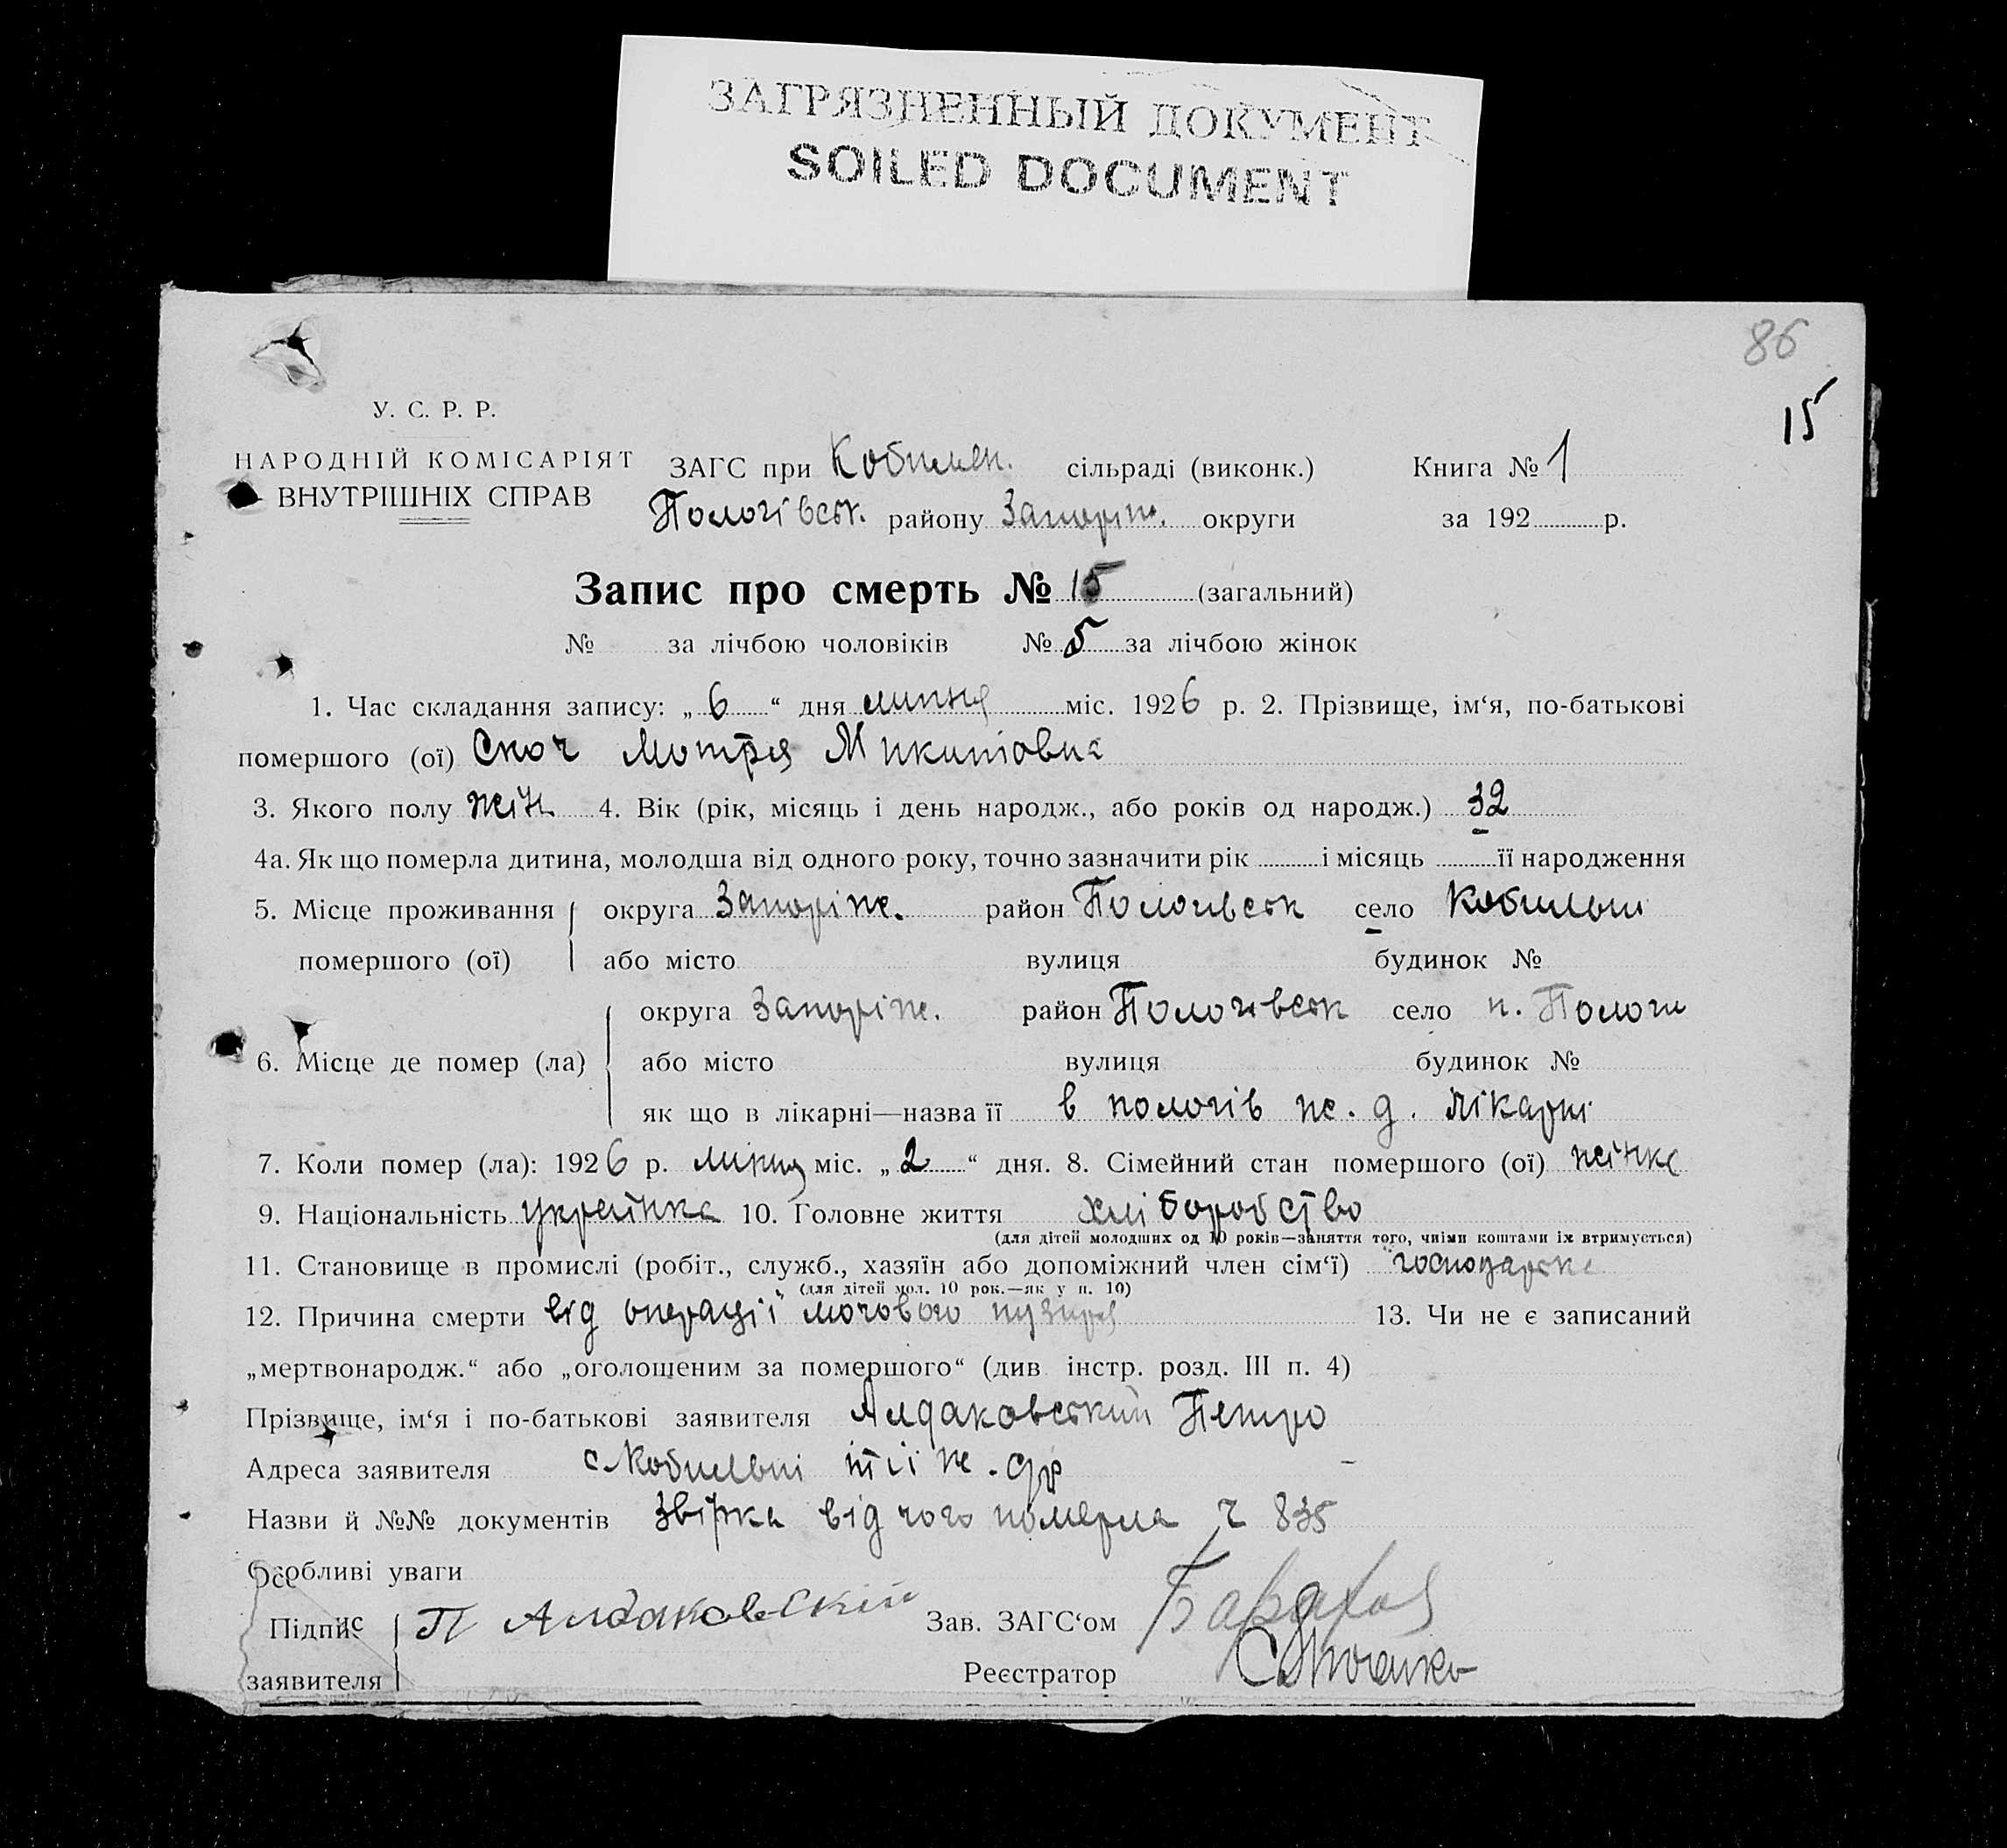 ЗАГРЯЗНЕННЫЙ ДОКУМЕНТ
SOILED DOCUMENT
86
15
У. С. Р. Р.
НАРОДНІЙ КОМІСАРІЯТ
ВНУТРІШНІХ СПРАВ
ЗАГС при Кобилян. сільраді (виконк.) Книга № 1
Пологівськ. району Запоріж. округи за 192 р.
Запис про смерть № 15 (загальний)
№ за лічбою чоловіків № 5 за лічбою жінок
1. Час складання запису: „ 6 “ дня липня міс. 1926 р. 2. Прізвище, ім‘я, по-батькові
помершого (ої) Скоч Мотря Микитовна
3. Якого полу жін 4. Вік (рік, місяць і день народж., або років од народж.) 32
4а. Як що померла дитина, молодша від одного року, точно зазначити рік і місяць її народження
5. Місце проживання округа Запоріж. район Пологівськ село Кобильні
помершого (ої) або місто вулиця будинок №
округа Запоріж. район Пологівськ село п. Пологи
6. Місце де помер (ла) або місто вулиця будинок №
як що в лікарні—назва її в пологів ж. д. лікарні
7. Коли помер (ла): 1926 р. липня міс. „ 2 “ дня. 8. Сімейний стан помершого (ої) жінка
9. Національність українка 10. Головне життя хліборобство
(для дітей молодших од 10 років—заняття того, чиїми коштами їх втримується)
11. Становище в промислі (робіт., служб., хазяїн або допоміжний член сім‘ї) господарка
(для дітей мол. 10 рок.—як у п. 10)
12. Причина смерти від операції мочового пузиря 13. Чи не є записаний
„мертвонародж.“ або „оголошеним за помершого“ (див інстр. розд. III п. 4)
Прізвище, ім‘я і по-батькові заявителя Алдаковський Петро
Адреса заявителя с Кобильні
Назви й №№ документів Звірка від чого померла ч 835
Особливі уваги
Підпис П Алдаковский Зав. ЗАГС‘ом
заявителя Реєстратор